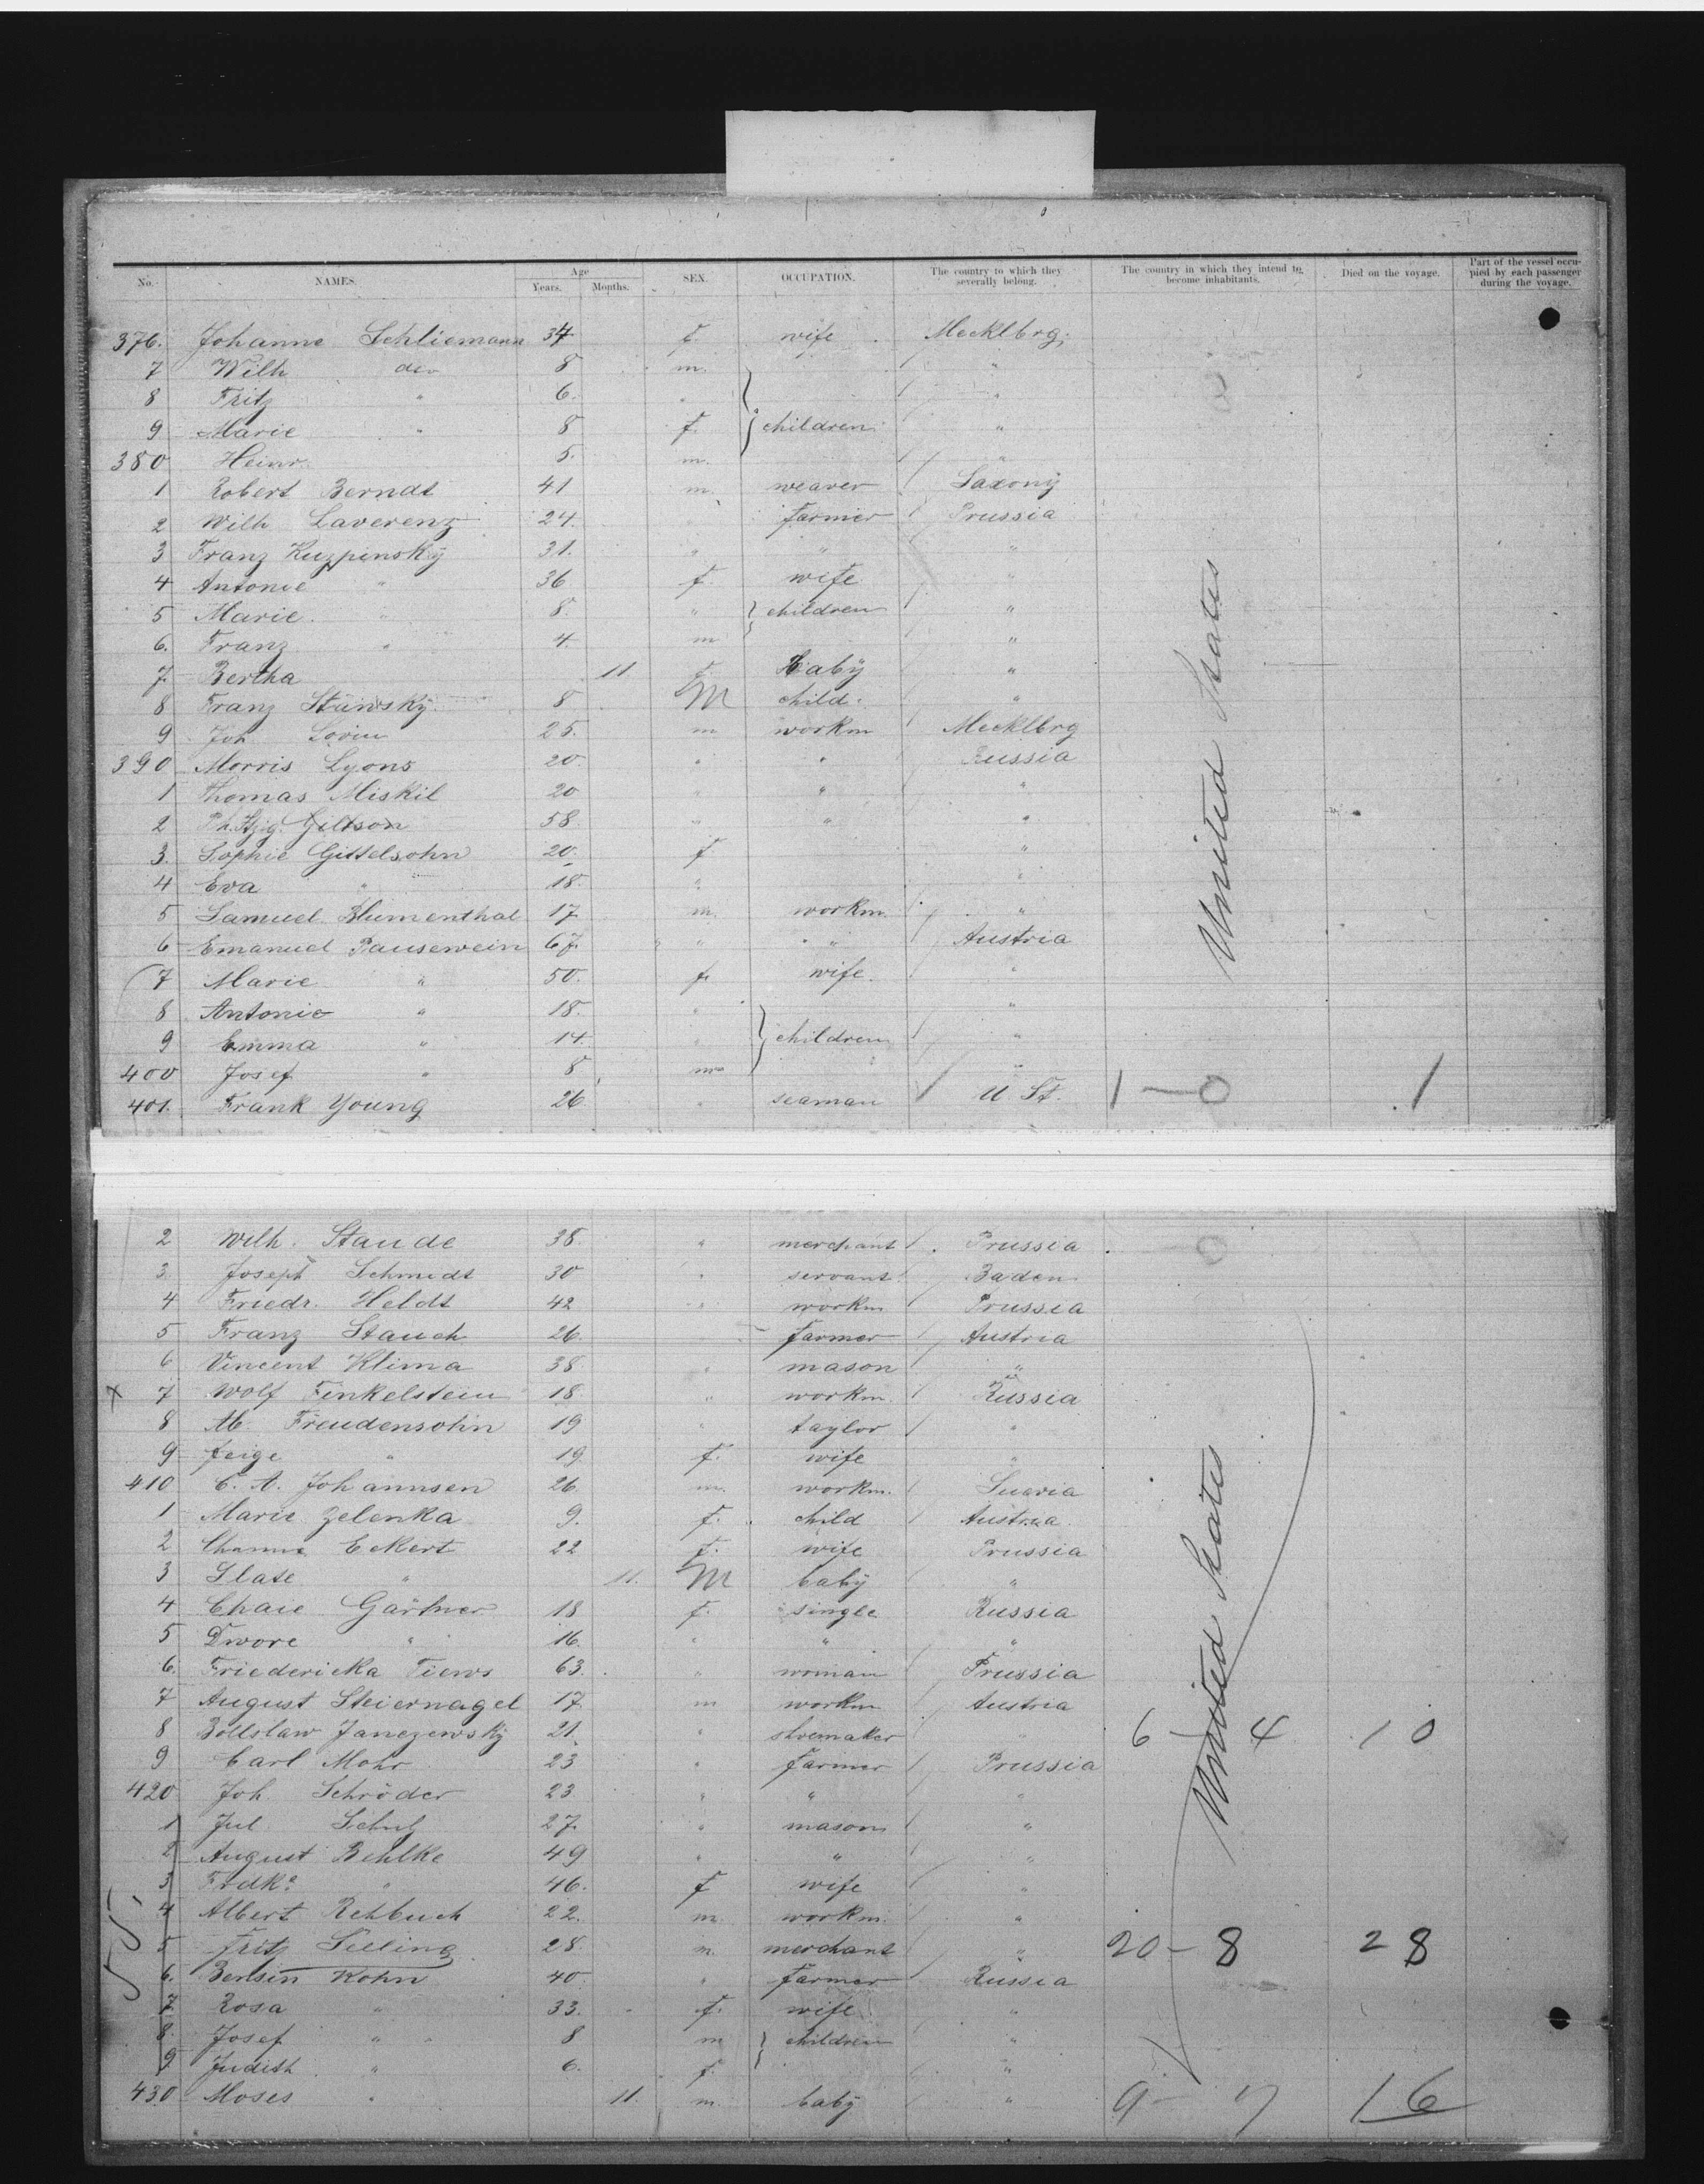 No. NAMES. Age Years. Months. SEX. OCCUPATION. The country to which they severally belong. The country in which they intend to become inhabitants. Died on the voyage. Part of the vessel occupied by each passenger during the voyage.
376. Johanne Schliemann 34 f. wife Mecklbrg.
7 Wilh do 8 m. "
8 Fritz " 6. " "
9 Marie " 8 f. children "
380 Heinr. 5. m. "
1 Robert Berndt 41 m. weaver Saxony
2 Wilh Laverenz 24. farmer Prussia
3 Franz Kuzpinsky 31. " " "
4 Antonie " 36 f. wife "
5 Marie. " 8. " children "
6. Franz " 4. m "
7. Bertha 11 f. baby "
8 Franz Stüwsky 8 M child. "
9 Joh. 25. m workm Mecklbrg
390 Morris Lyons 20 " " Russia
1 Thomas Miskil 20 " " "
2 Gillson 58 " " "
3. Sophie Gittelsohn 20. f "
4 Eva " 18. " "
5 Samuel Blumenthal 17 m. workm. "
6 Emanuel Pausewein 67. " " Austria
7 Marie " 50. f. wife. "
8 Antonie " 18. " "
9 Emma " 14. " children "
400 Josef " 8 m "
401. Frank Young 26. " seaman U. St. 1 — 0 1
United States
2 Wilh. Staude 38. " merchant Prussia
3 Joseph Schmidt 30 " servant Baden
4 Friedr. Heldt 42 " workm Prussia
5 Franz Stauch 26. farmer Austria
6 Vincent Klima 38. " mason "
x 7 Wolf Finkelstein 18 " workm. Russia
8 M. Freudensohn 19 " taylor "
9 Feige " 19 f. wife "
410 C. A. Johannsen 26. m. workm.
1 Marie Zelenka 9. f. child Austria
2 Eckert 22 f. wife Prussia
3 Slate " 11. M baby "
4 Chaie Gärtner 18 f. single Russia
5 Dwore " 16. " " "
6. Friedericka Tiews 63. " woman Prussia
7 August Steiernagel 17 m workm Austria
8 Bollslaw Janczewsky 21. " shoemaker " 6 4 10
9 Carl Mohr 23 " farmer Prussia
420 Joh. Schröder 23. " " "
1 Jul. Schulz 27. " mason "
2 August Behlke 49 " " "
3 Frdke " 46. f wife "
4 Albert Rehbuch 22. m. workm. "
5 Fritz Seeling 28. m. merchant " 20 - 8 28
6. Kohn 40 " farmer Russia
7. Rosa " 33. f. wife "
8. Josef " 8 m children "
9. Judith " 6. f. "
430 Moses " 11. m baby " 9 - 7 16
United States